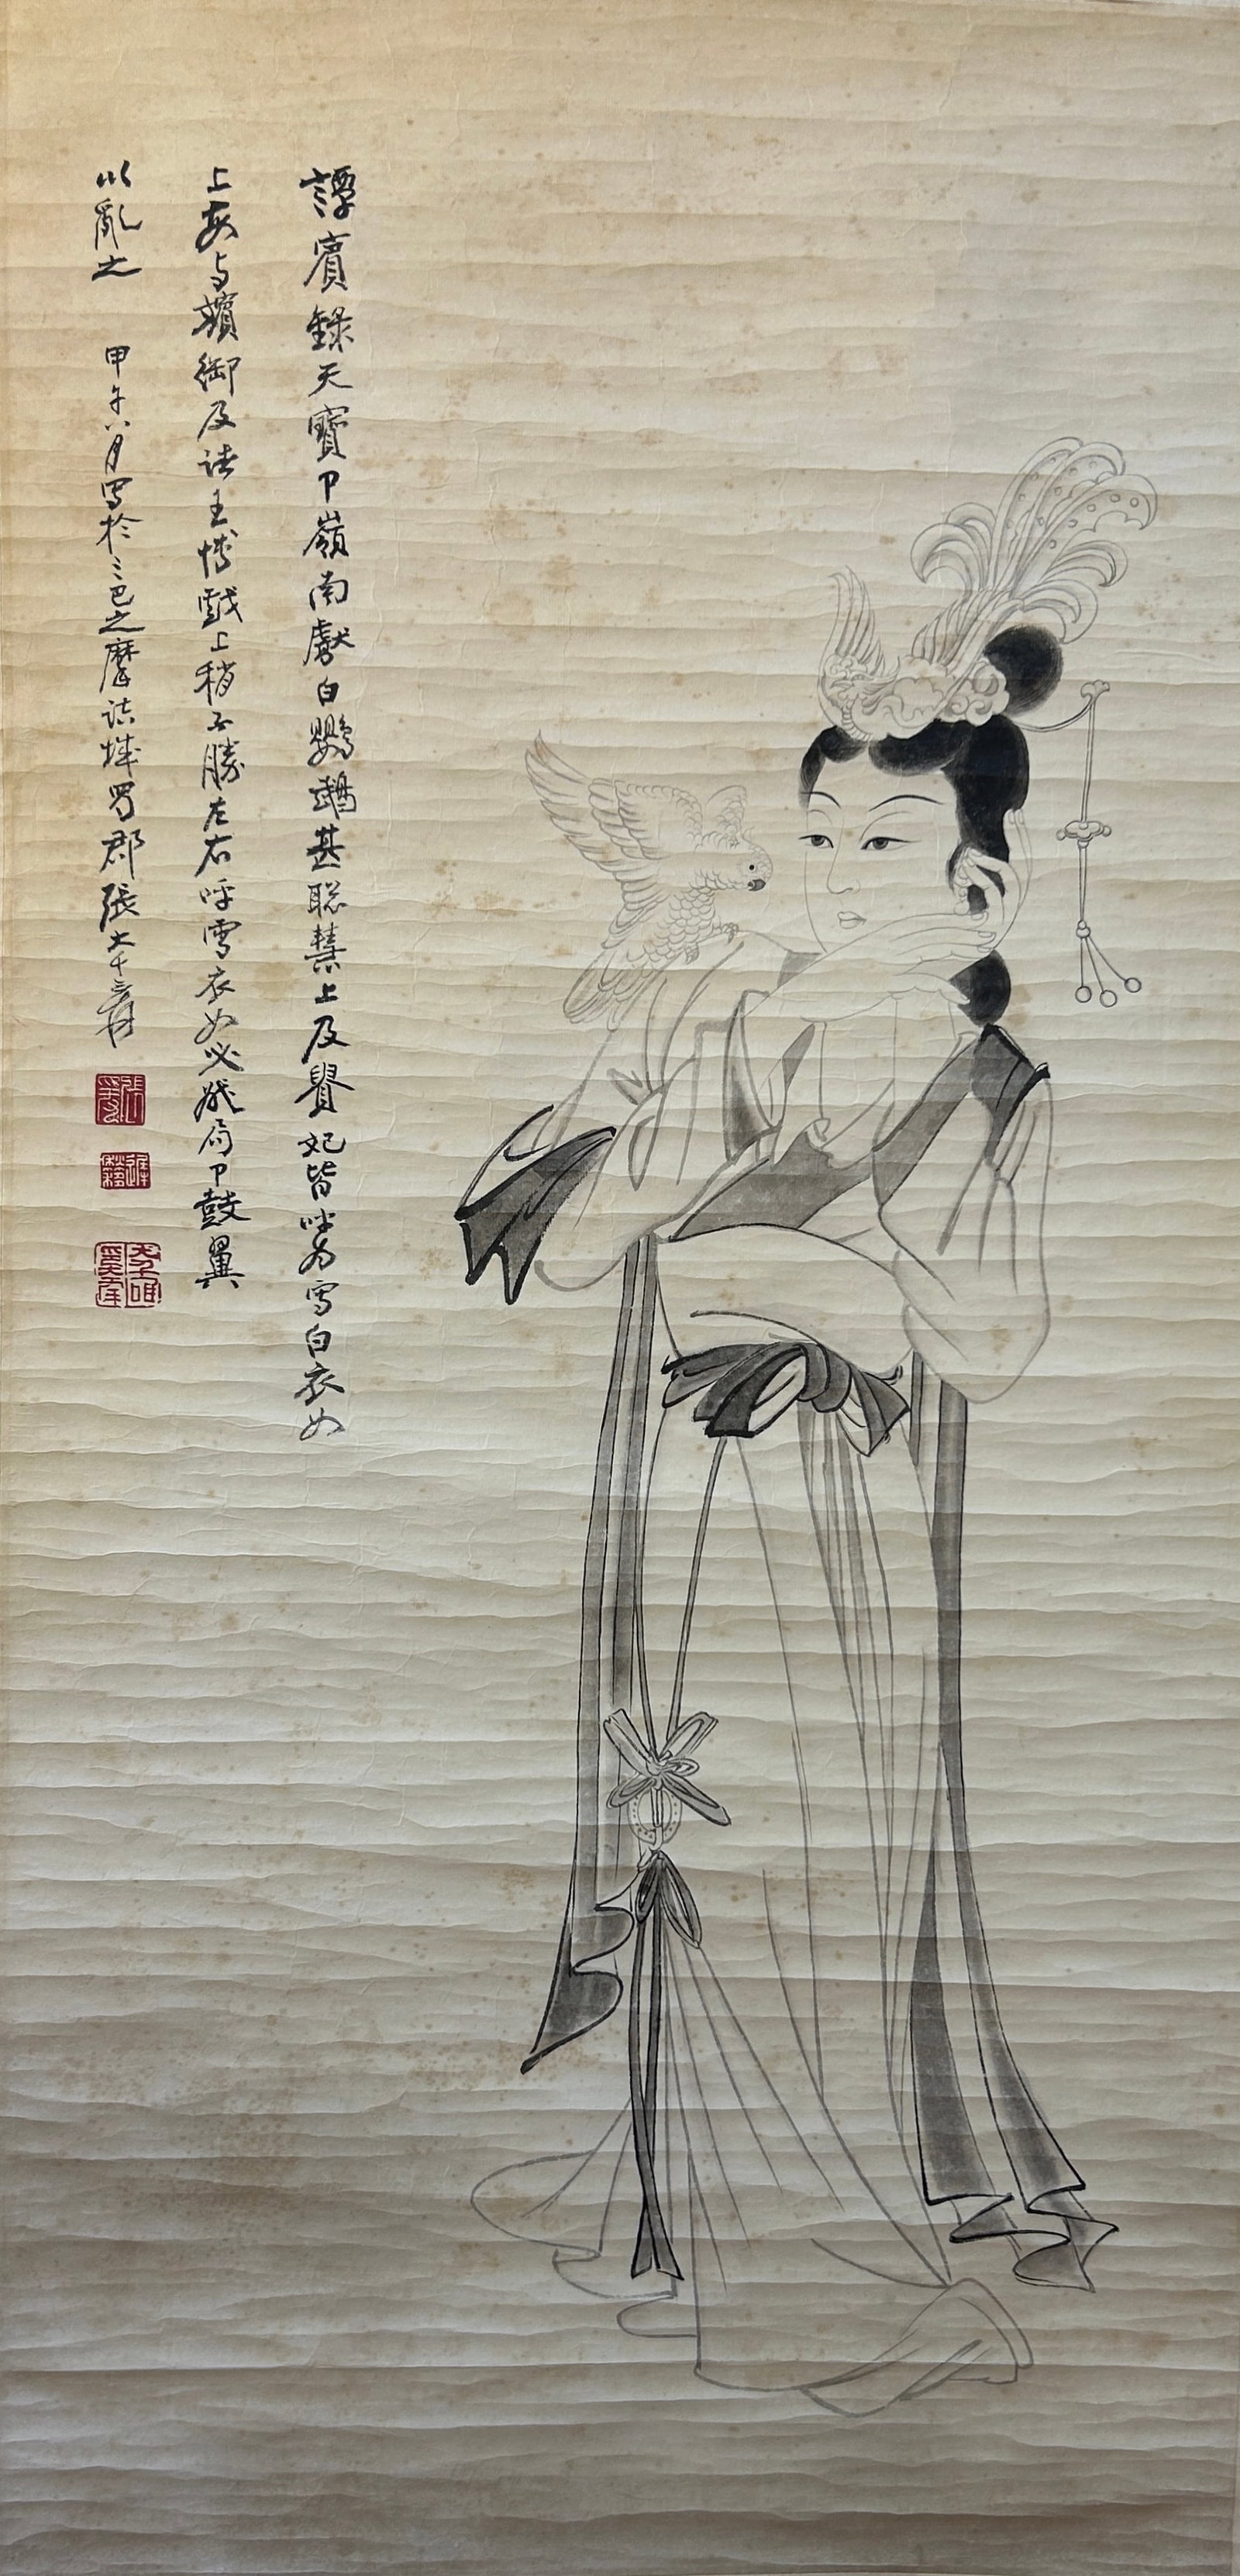 譚賓錄天寶中嶺南獻白鸚鵡甚聰慧上及貴妃皆呼為雪白衣女
上每与嬪御及諸王博戲上稍不勝左右呼雪衣女必飛局中鼓翼
以亂之 甲午八月寫於三巴之摩詰城蜀郡張大千爰